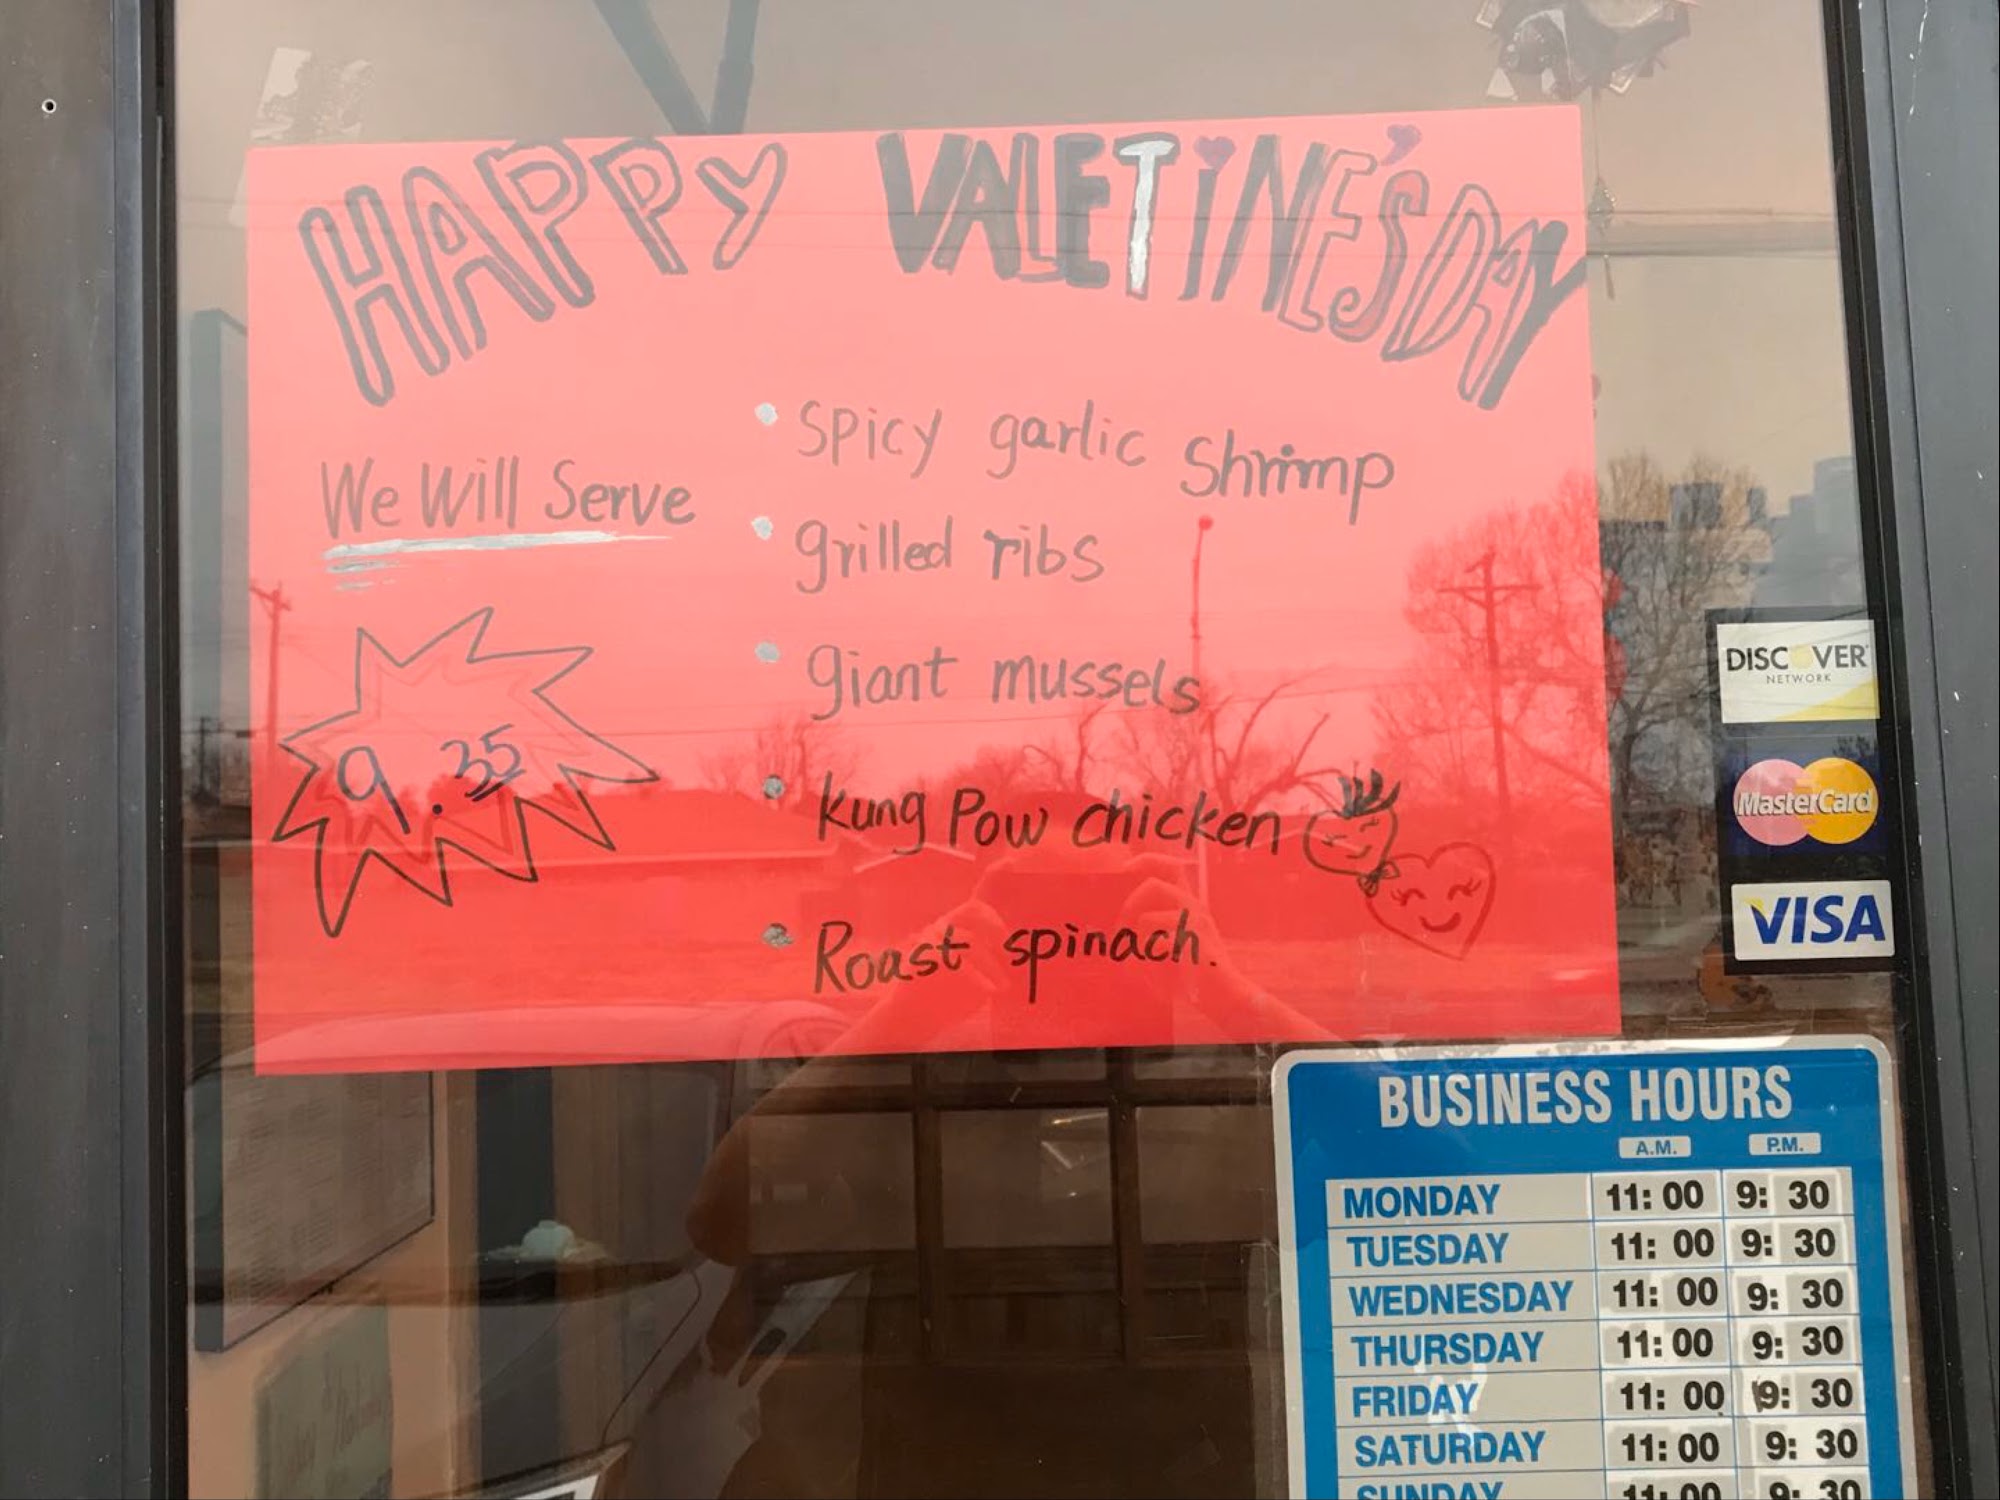 HAPPY VALETiNE'S DAY
We Will Serve
9.35
• spicy garlic shrimp
• grilled ribs
• giant mussels
• kung Pow chicken
• Roast spinach.
DISCOVER
NETWORK
MasterCard
VISA
BUSINESS HOURS
A.M. P.M.
MONDAY 11:00 9:30
TUESDAY 11:00 9:30
WEDNESDAY 11:00 9:30
THURSDAY 11:00 9:30
FRIDAY 11:00 9:30
SATURDAY 11:00 9:30
SUNDAY 11:00 9:30